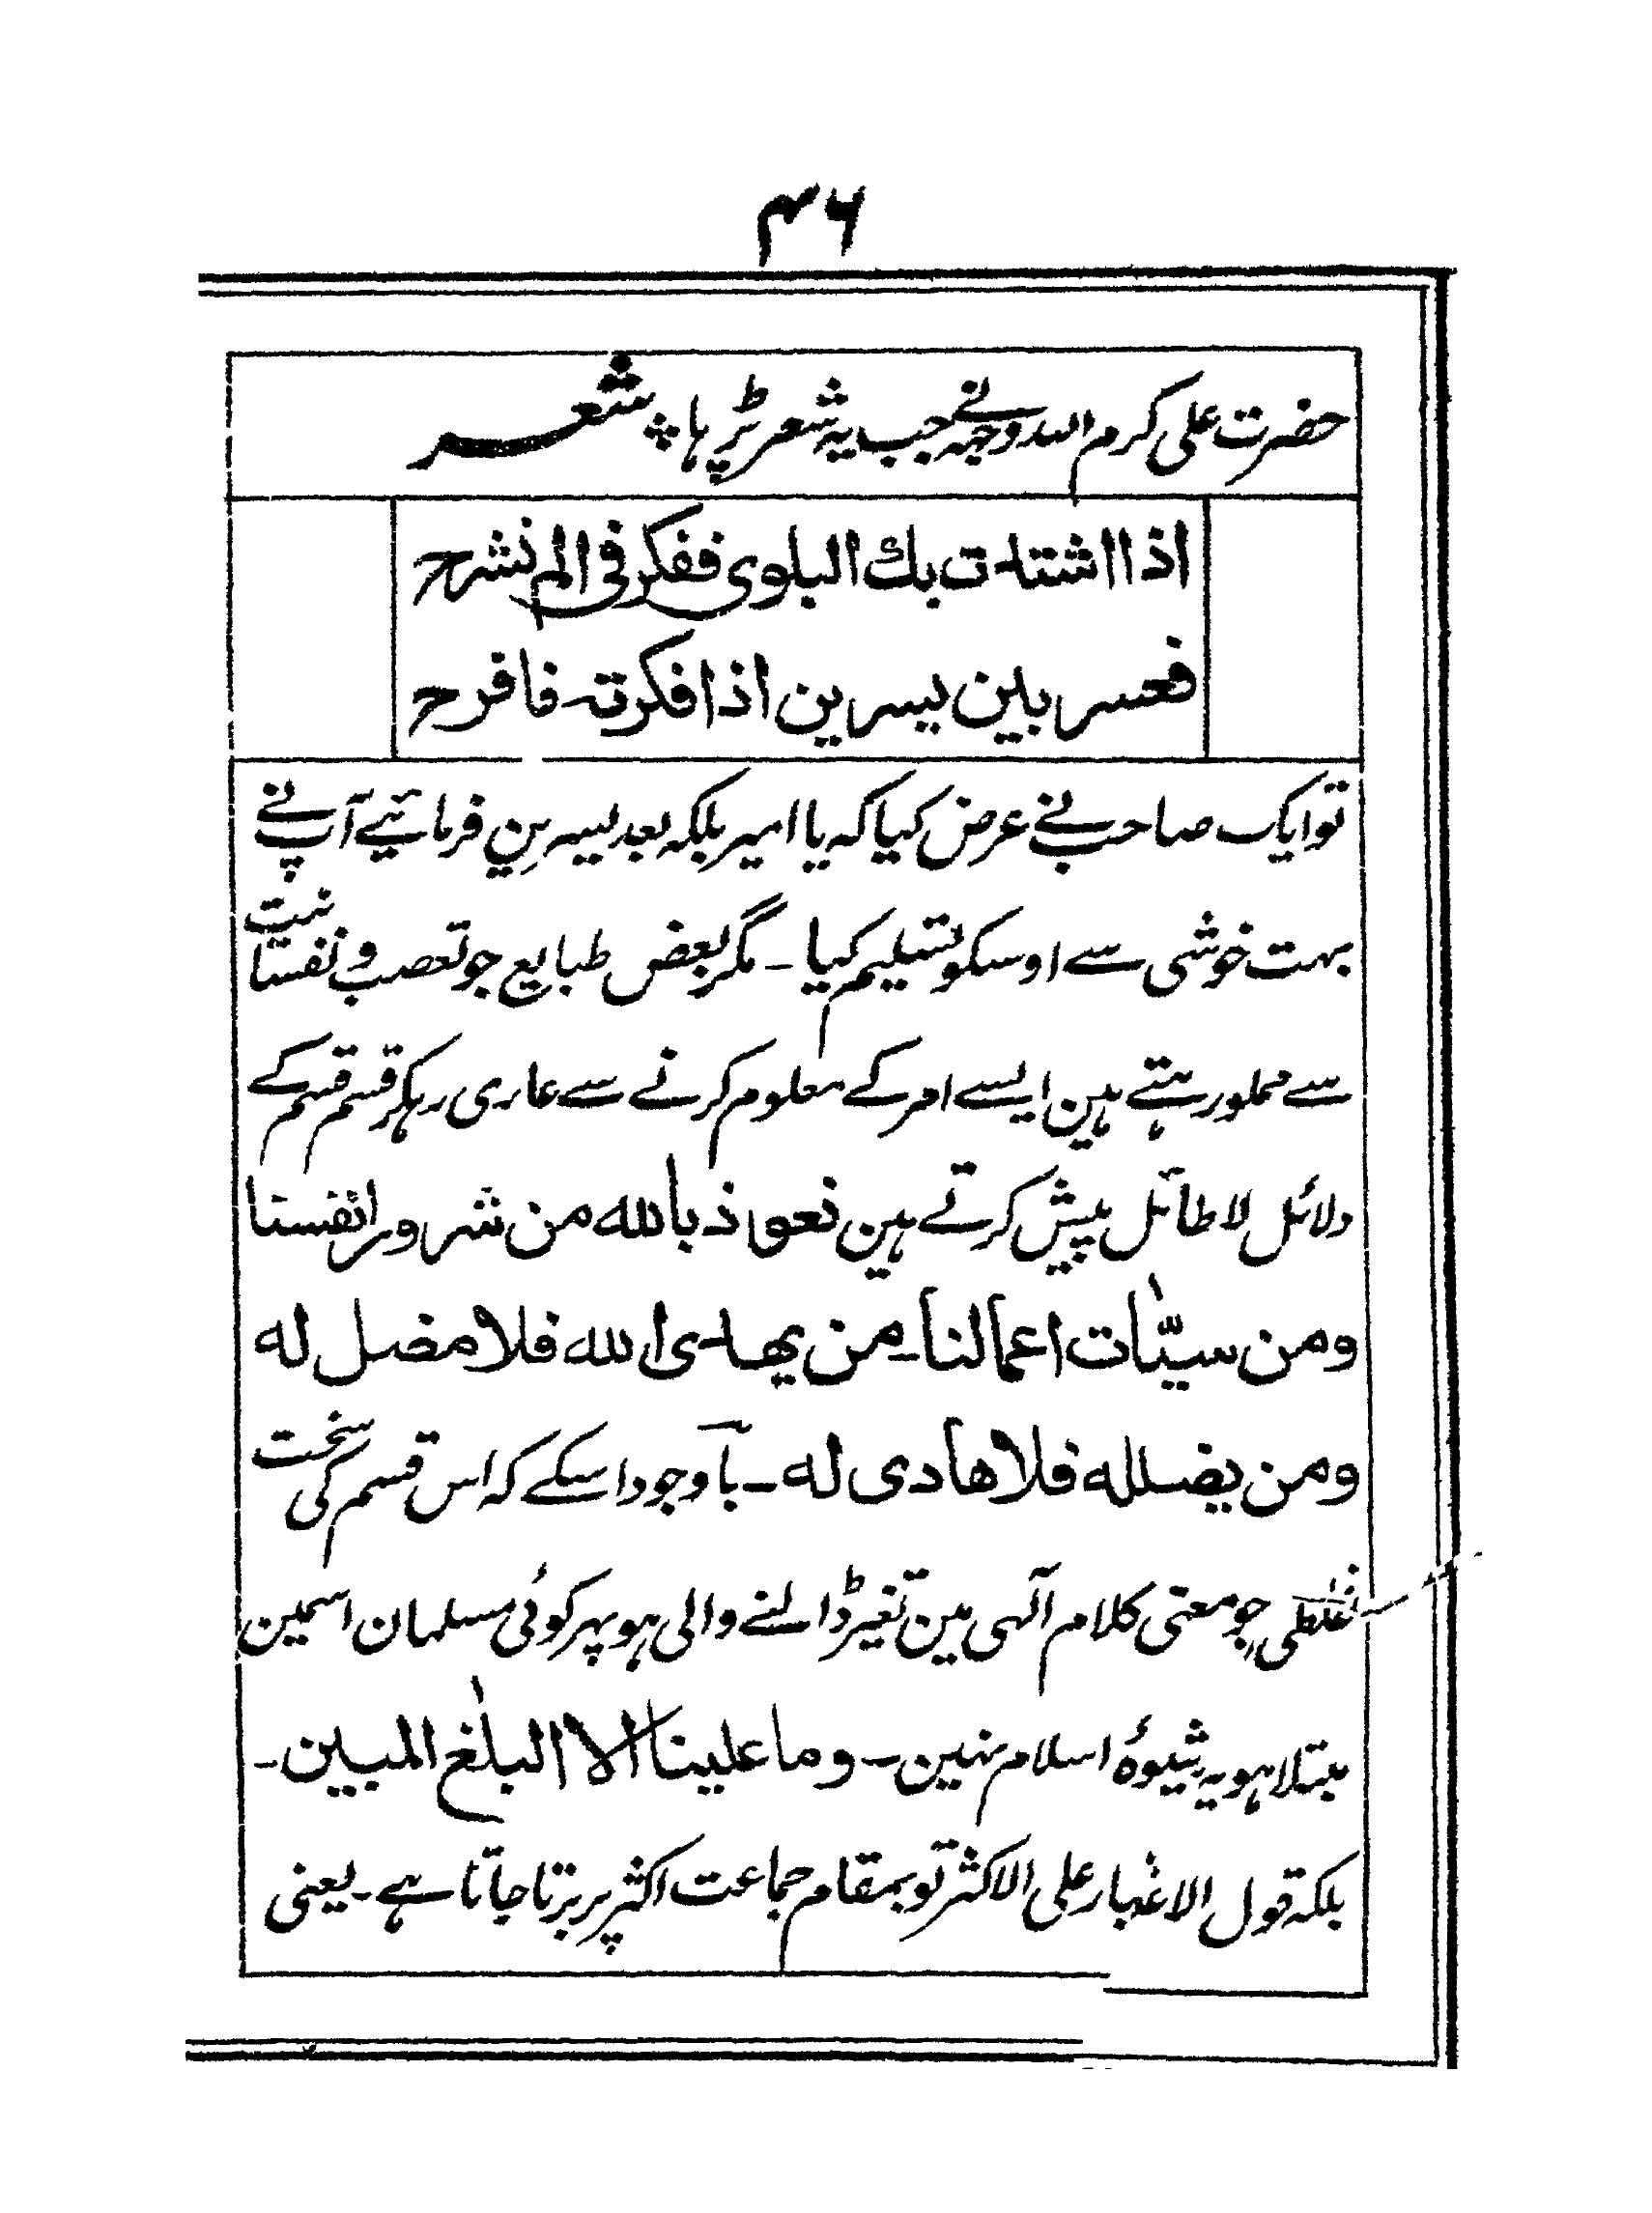 ۴۶
حضرت علی کرم اللہ وجہہ نے جب یہ شعر پڑہا ؞ شعر
اذا اشتدت بك البلوى ففكر فى الم نشرح
فعسر بين يسرين اذا فكرته فافرح
تو ایک صاحب نے عرض کیا کہ یا امیر بلکہ بعد یسرین فرمائیے آپ نے
بہت خوشی سے اوسکو تسلیم کیا ۔ مگر بعض طبایع جو تعصب و نفسانیت
سے مملو رہتے ہین ایسے امر کے معلوم کرنے سے عاری رہکر قسم قسم کے
دلائل لا طائل پیش کرتے ہین نعوذ بالله من شرور انفسنا
ومن سيّاٰت اعمالنا ۔ من يهدى الله فلا مضل له
ومن يضلله فلا هادى له ۔ باوجود اسکے کہ اس قسم کی سخت
غلطی جو معنی کلام آلہی مین تغیر ڈالنے والی ہو پہر کوئی مسلمان اسمین
مبتلا ہو یہ شیوۂ اسلام نہین ۔ وما علينا الا البلٰغ المبين ۔
بلکہ قول الاغبار علی الاکثر تو بمقام جماعت اکثر پر برتا جاتا ہے ۔ یعنی